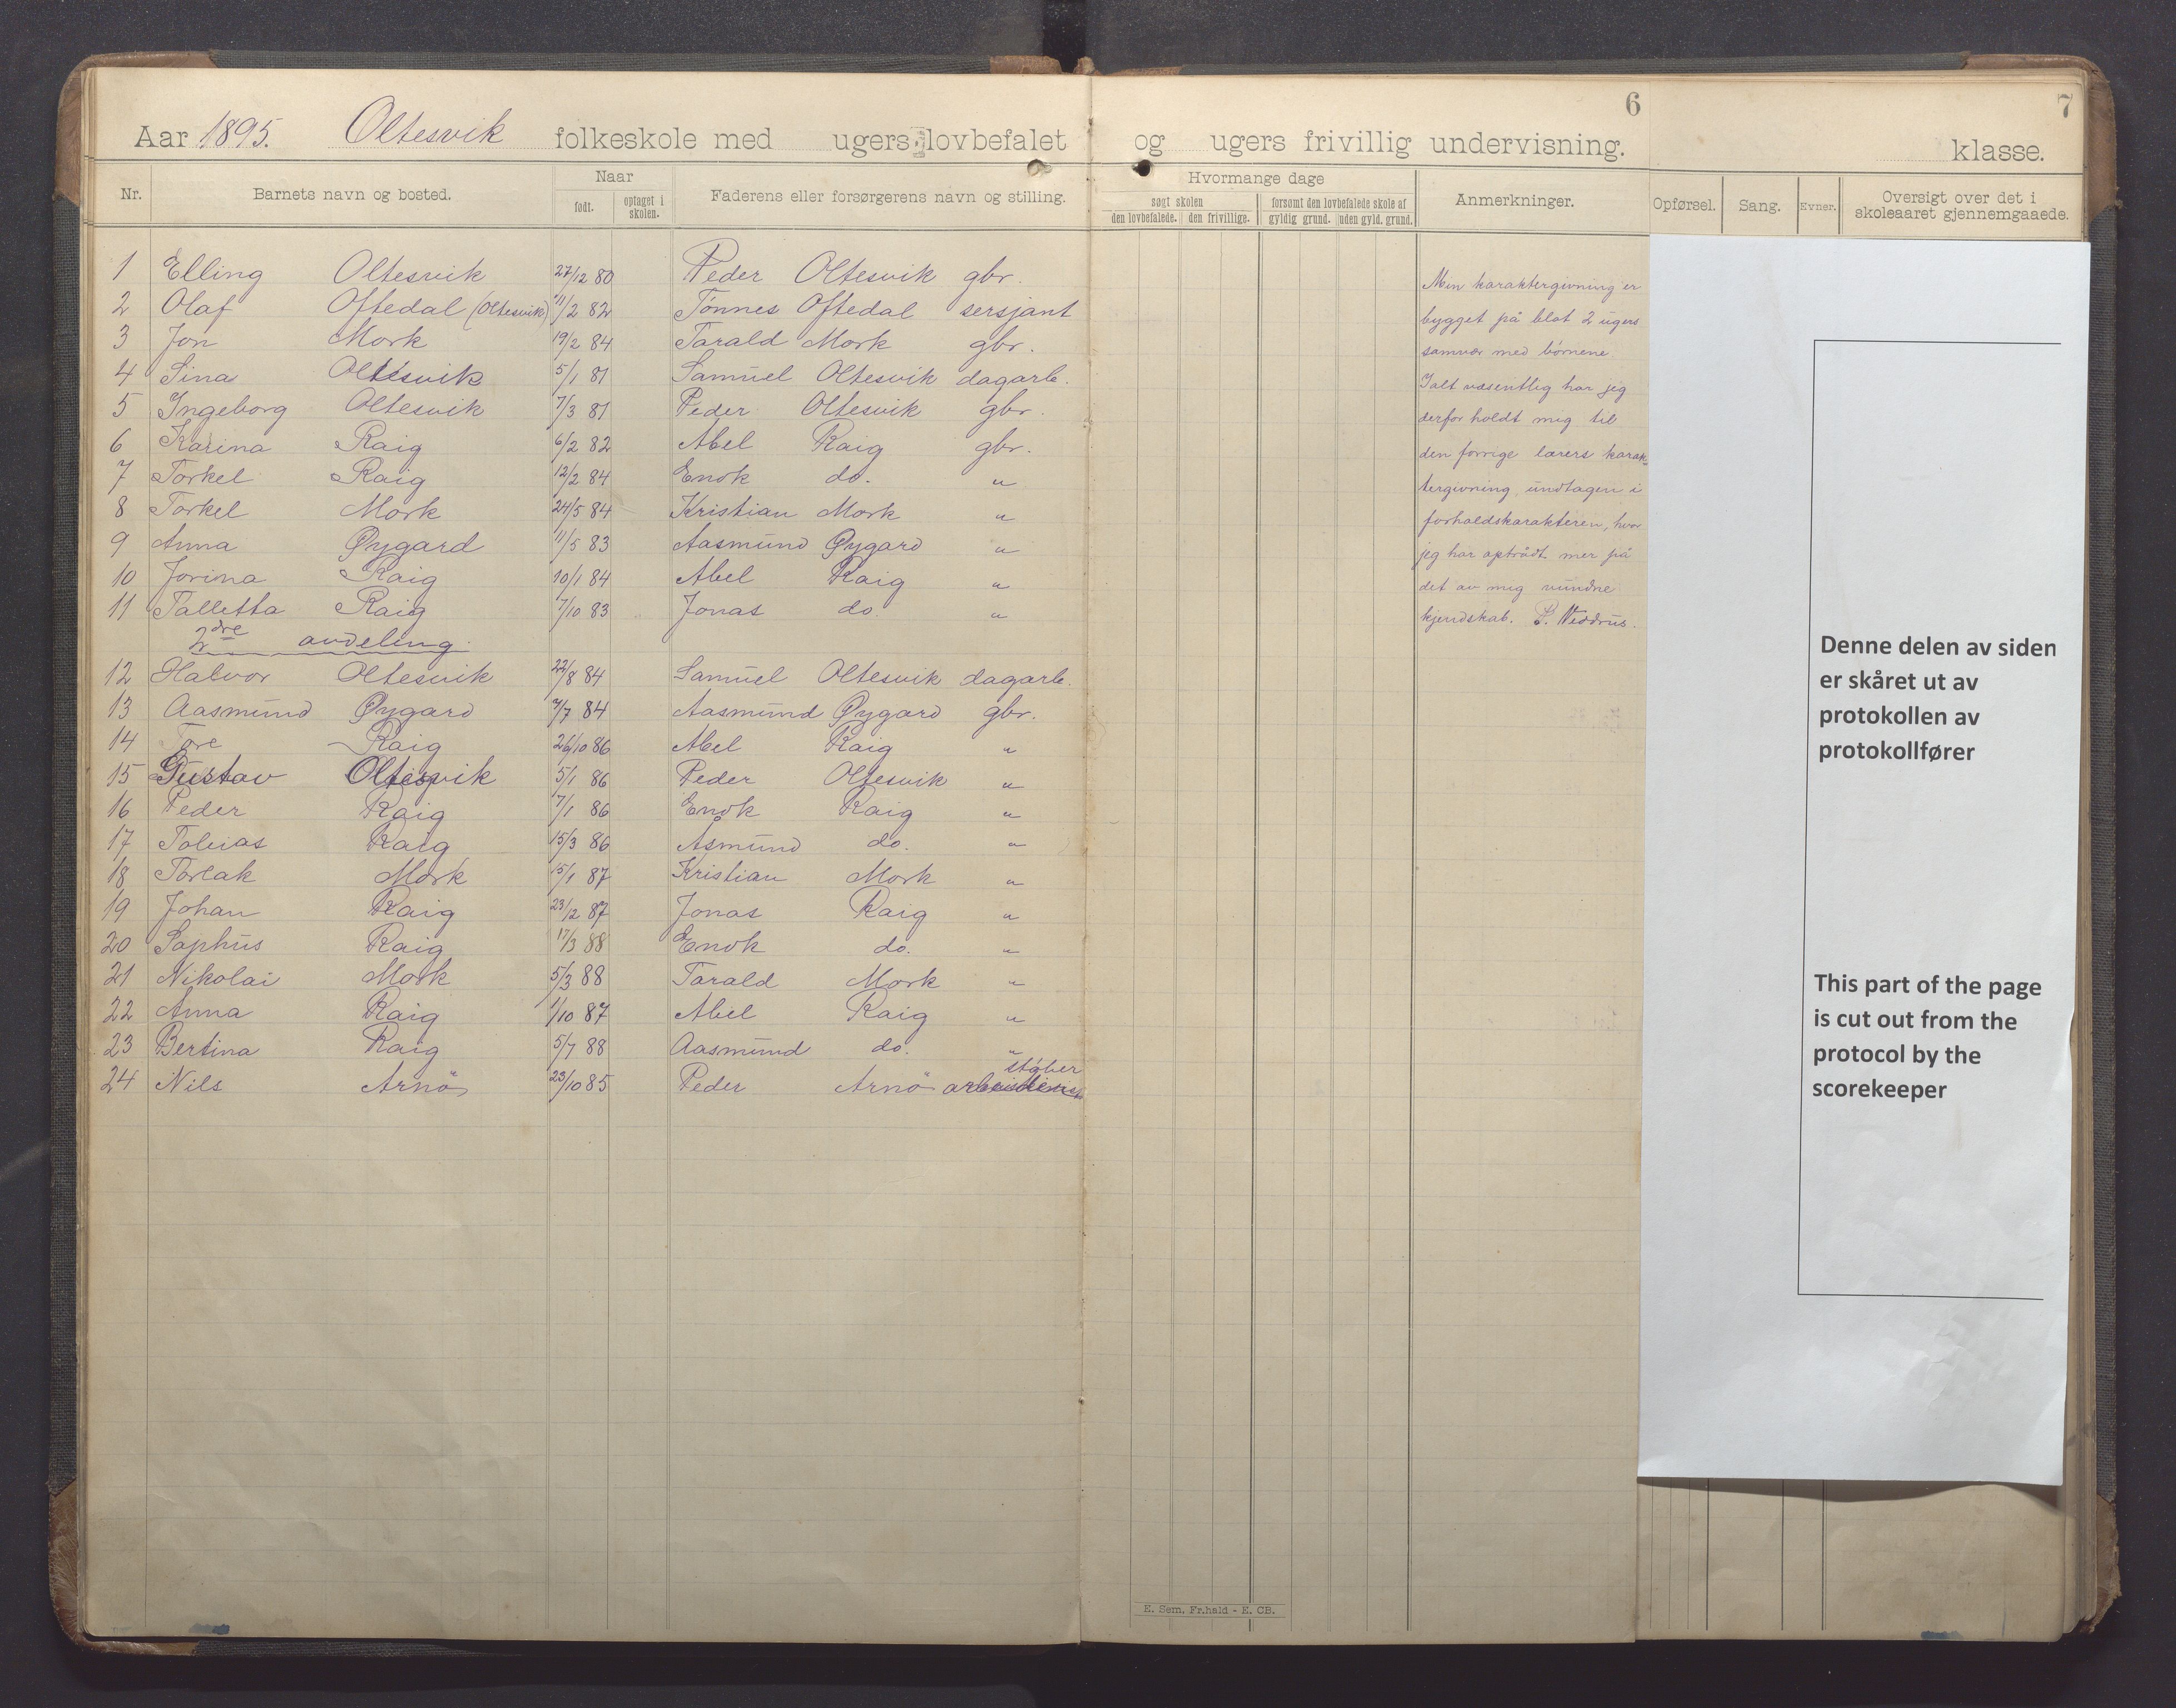 6
7
Aar 1895. Oltesvik folkeskole med ugers lovbefalet og ugers frivillig undervisning.
klasse.
Nr. Barnets navn og bosted. Naar født. optaget i skolen. Faderens eller forsørgerens navn og stilling.
Hvormange dage
søgt skolen
den lovbefalede. den frivillige.
forsømt den lovbefalede skole af
gyldig grund. uden gyld. grund.
Anmerkninger.
Opførsel. Sang. Evner. Oversigt over det i skoleaaret gjennemgaaede.
1 Elling Oltesvik 27/12 80 Peder Oltesvik gbr.
2 Olaf Oftedal (Oltesvik) 11/2 82 Tönnes Oftedal sersjant
3 Jon Mork 19/2 84 Tarald Mork gbr.
4 Sina Oltesvik 5/1 81 Samuel Oltesvik dagarb.
5 Ingeborg Oltesvik 7/3 81 Peder Oltesvik gbr.
6 Karina Raig 6/2 82 Abel Raig gbr.
7 Torkel Raig 12/2 84 Enok do. "
8 Torkel Mork 24/5 84 Kristian Mork "
9 Anna Øygard 11/5 83 Aasmund Øygard "
10 Jorina Raig 10/1 84 Abel Raig "
11 Talletta Raig 7/10 83 Jonas do. "
2dre avdeling.
12 Halvor Oltesvik 22/8 84 Samuel Oltesvik dagarb.
13 Aasmund Øygard /7 84 Aasmund Øygard gbr.
14 Tore Raig 26/10 86 Abel Raig "
15 Gustav Oltesvik 5/1 86 Peder Oltesvik "
16 Peder Raig 7/1 86 Enok Raig "
17 Tobias Raig 15/3 86 Åsmund do. "
18 Torlak Mork 15/1 87 Kristian Mork "
19 Johan Raig 23/12 87 Jonas Raig "
20 Sophus Raig 17/3 88 Enok do. "
21 Nikolai Mork 5/3 88 Tarald Mork "
22 Anna Raig 1/10 87 Abel Raig "
23 Bertina Raig 5/7 88 Aasmund do. "
24 Nils Arnö 23/10 85 Peder Arnö
Min karaktergivning er
bygget på blot 2 ugers
samvær med börnene
Ialt væsentlig har jeg
derfor holdt mig til
den forrige lærers karak-
tergivning undtagen i
forholdskarakteren, hvor
jeg har optrådt mer på
det av mig vundne
kjendskab.
Denne delen av siden
er skåret ut av
protokollen av
protokollfører
This part of the page
is cut out from the
protocol by the
scorekeeper
E. Sem, Fr.hald - E. CB.